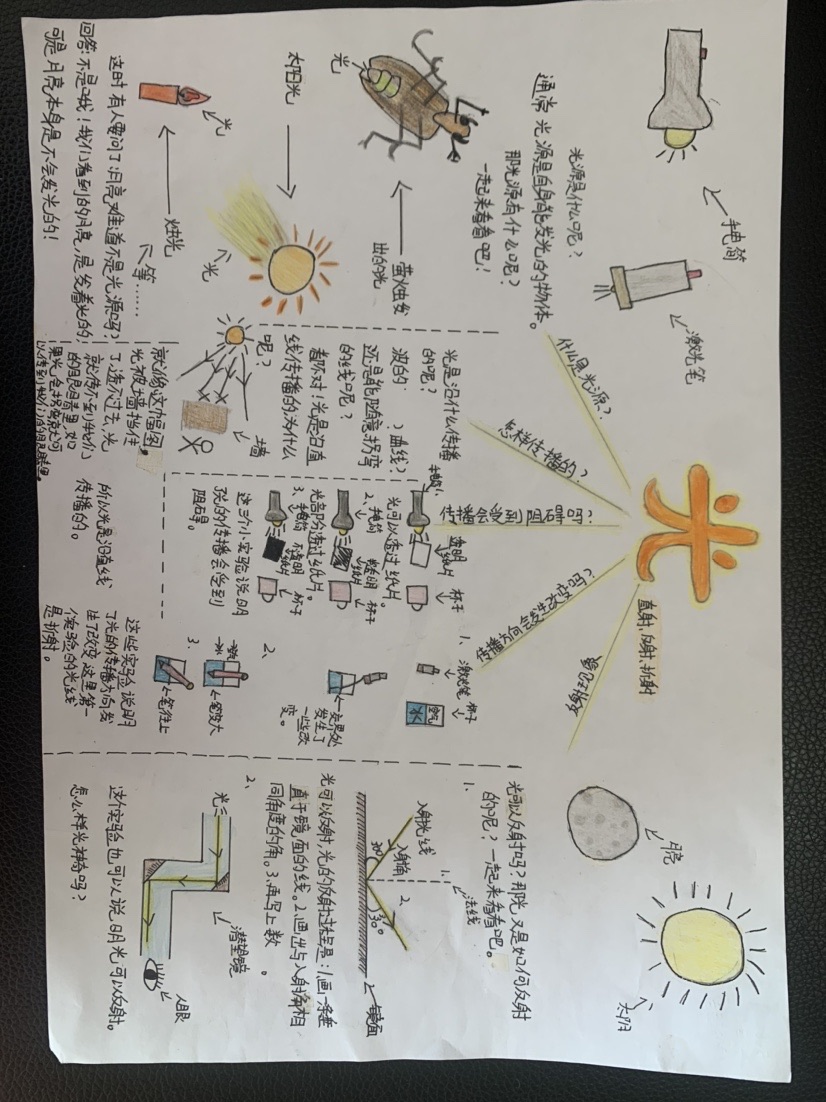 光
直射、反射、折射
什么是光源？
怎样传播的？
传播会受到阻碍吗？
传播方向会发生改变吗？
手电筒
激光笔
光源是什么呢？
通常光源是自身能发光的物体。
那光源有什么呢？
一起来看看吧！
萤火虫发
出的光
光
太阳光
光
烛光
光
等……
这时有人要问了：月亮难道不是光源吗？
回答：不是哦！我们看到的月亮，是发着光的！
可是月亮本身是不会发光的！
光是沿什么传播
的呢？
波的？曲线？
还是能随意拐弯
的线呢？
都不对！光是沿直
线传播的为什么
呢？
墙
就像这幅图，
光被墙挡住
了透不过去，光
就传不到我们
的眼睛里，如
所以光是沿直线
传播的。
手电筒
透明
纸片
杯子
光可以透过纸片。
2、手电筒
杯子
光部份透过纸片。
3、手电筒
不透明
纸片
杯子
这三个小实验说明
光的传播会受到
阻碍。
1、
激光笔
杯子
空气
水
2、
交界处
发生了
一些改
变。
3、
笔变大
笔往上
这些实验说明
了光的传播方向发
生了改变，这里第一
个实验的光线
是折射。
月亮
太阳
光可以反射吗？那光又是如何反射
的呢？一起来看看吧。
1、
入射光线
入射角
30°
30°
1.
2.
法线
镜面
光可以反射，光的反射过程是：1、画一条垂
直于镜面的线。2、画出与入射角相
同角度的角。3、再写上数。
2、
光
潜望镜
人眼
这个实验也可以说明光可以反射。
怎么样光神奇吗？